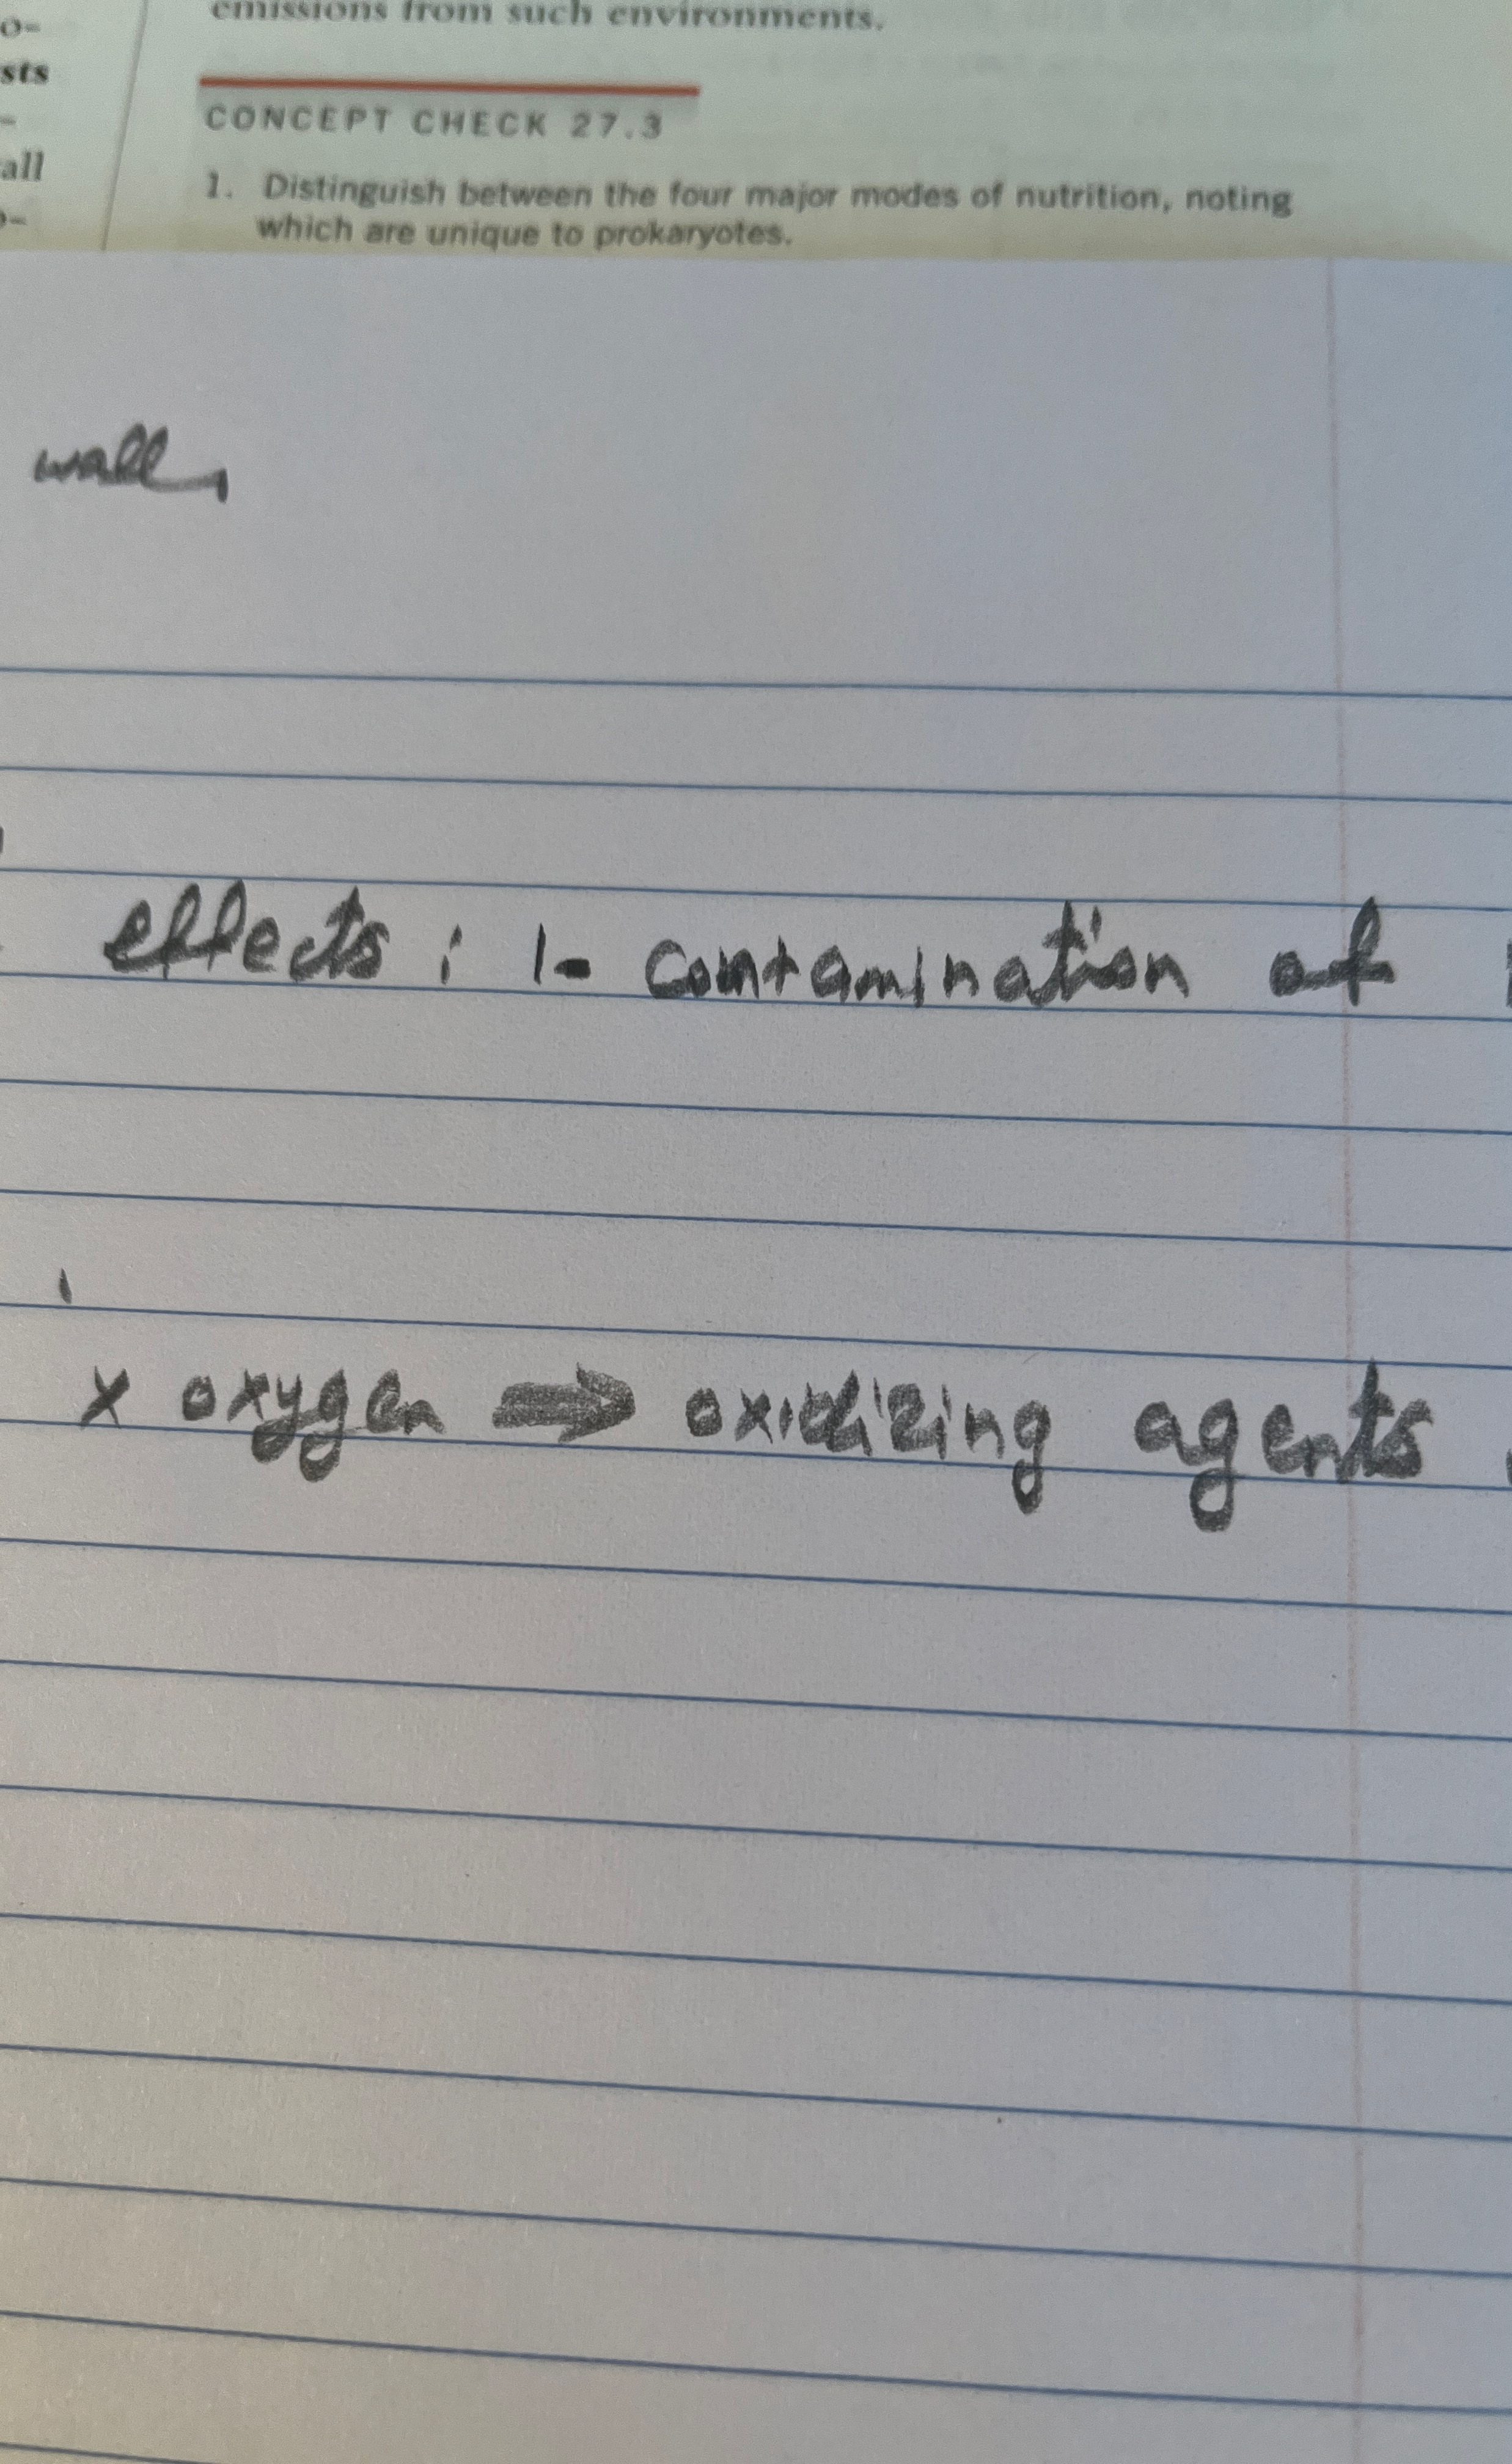 emissions from such environments.
o-
sts
CONCEPT CHECK 27.3
-
all
1. Distinguish between the four major modes of nutrition, noting
which are unique to prokaryotes.
wall,
effects : 1- contamination of
x oxygen ⇒ oxidizing agents